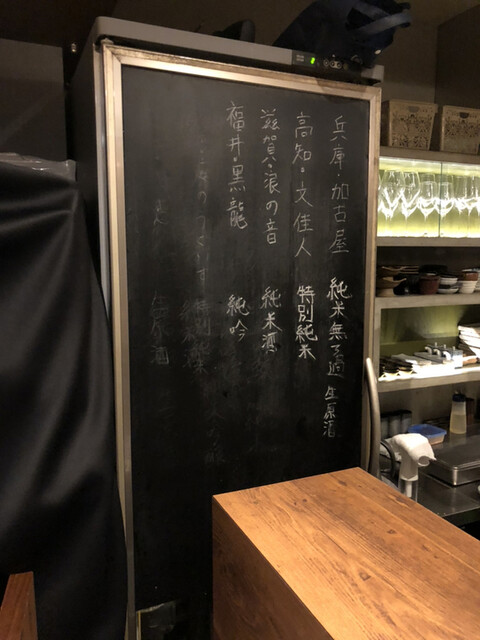 兵庫・加古屋 純米無ろ過 生原酒
高知・文佳人 特別純米
滋賀・浪の音 純米酒
福井・黒龍 純吟